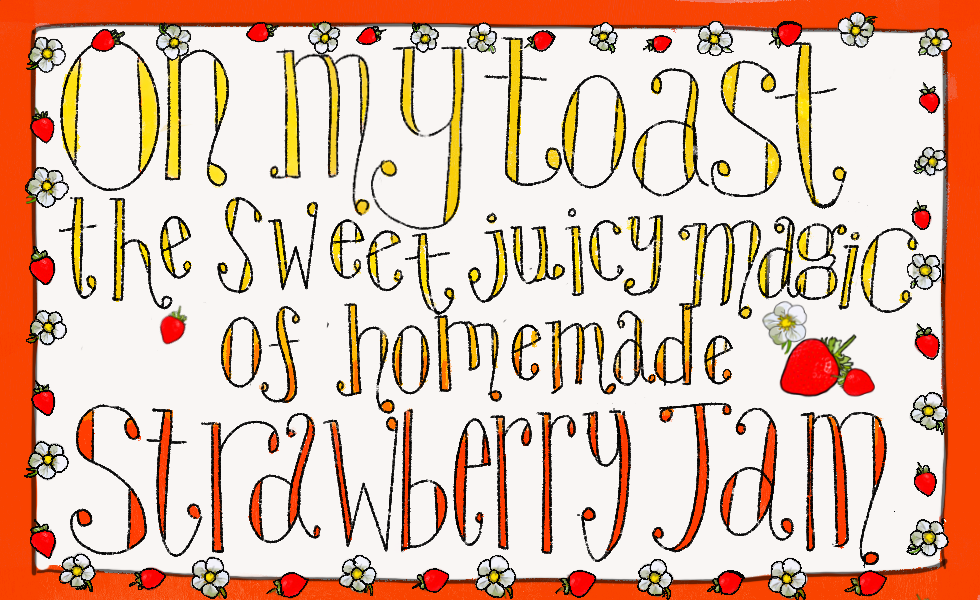 On my toast
the sweet juicy magic
of homemade
Strawberry Jam